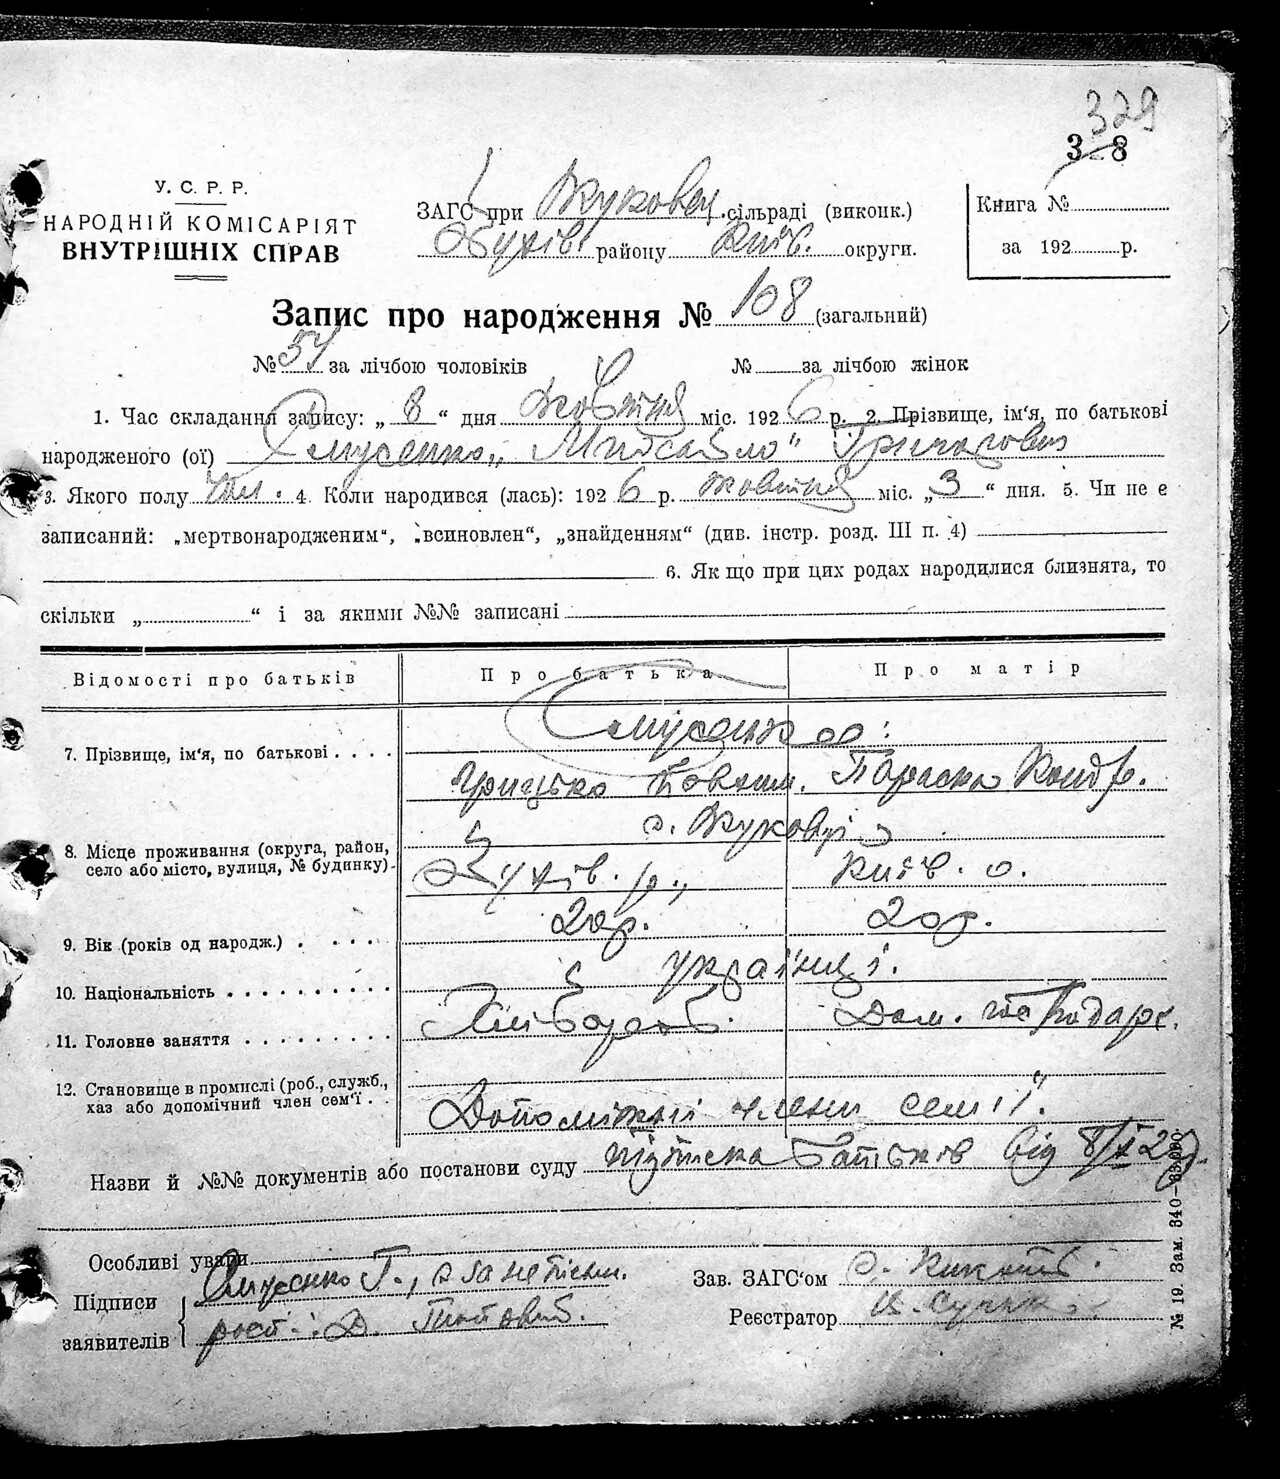 329
3 8
У. С. Р. Р.
НАРОДНІЙ КОМІСАРІЯТ
ВНУТРІШНІХ СПРАВ
ЗАГС при Жуковец. сільраді (виконк.)
Обухів. району Київ. округи.
Книга №
за 192 р.
Запис про народження № 108 (загальний)
№ 54 за лічбою чоловіків № за лічбою жінок
1. Час складання запису: „ 8 “ дня Жовтня міс. 192 6 р. 2. Прізвище, ім'я, по батькові
народженого (ої) „ Михайло “
3. Якого полу Чол. 4. Коли народився (лась): 192 6 р. жовтня міс. „ 3 “ дня. 5. Чи не є
записаний: „мертвонародженим“, „всиновлен“, „знайденням“ (див. інстр. розд. III п. 4)
6. Як що при цих родах народилися близнята, то
скільки „ “ і за якими №№ записані
Відомості про батьків Про батька Про матір
7. Прізвище, ім'я, по батькові
Грицько Параска Кондр.
с. Жуковці
8. Місце проживання (округа, район,
село або місто, вулиця, № будинку)
Обухів. р., Київ. о.
9. Вік (років од народж.) 20р. 20р.
10. Національність українці.
11. Головне заняття Хлібороб. Дом. господарк.
12. Становище в промислі (роб., служб.,
хаз або допомічний член сем'ї
Допоміжні члени сем'ї.
Назви й №№ документів або постанови суду підписка батьків від 8/X 26р.
Особливі уваги
Підписи
заявителів
Г., а за неписьм.
рост: Д.
Зав. ЗАГС'ом
Реєстратор
№ 19. Зам. 340—33.000.